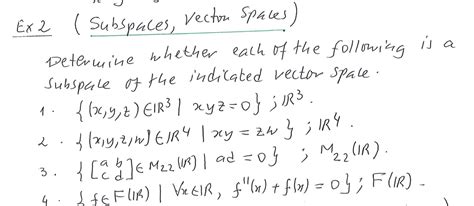 Ex 2 (Subspaces, Vector Spaces)
Determine whether each of the following is a
subspace of the indicated vector space.
1. {(x,y,z)∈ℝ³ | xyz=0} ; ℝ³.
2. {(x,y,z,w)∈ℝ⁴ | xy = zw} ; ℝ⁴.
3. {[a b c d]∈ M₂₂(ℝ) | ad = 0} ; M₂₂(ℝ).
4. {f∈F(ℝ) | ∀x∈ℝ, f''(x) + f(x) = 0} ; F(ℝ).